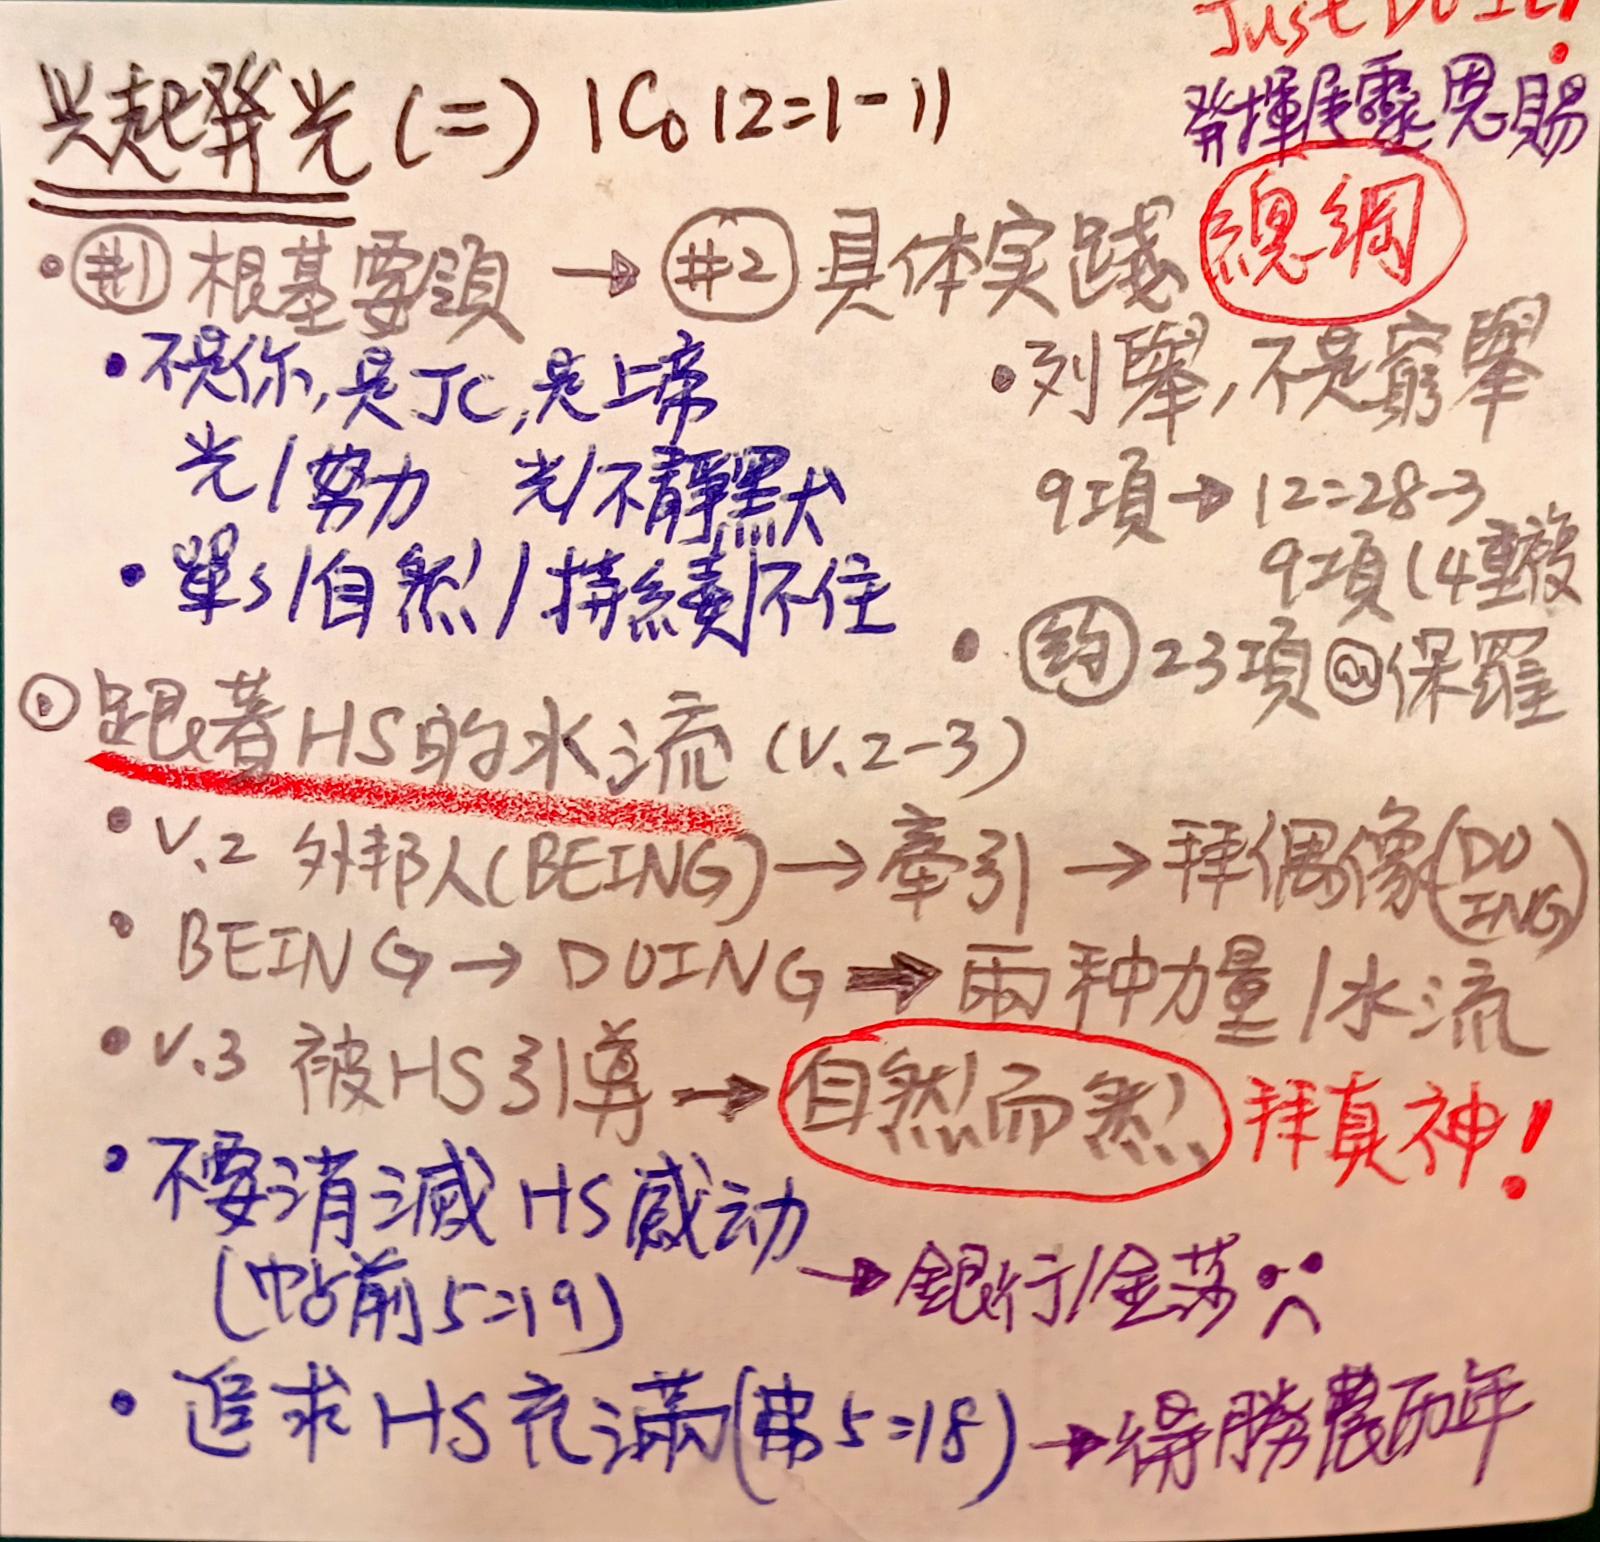 Just DO IT!
兴起發光(二) 1Co12=1-11
發揮屬靈恩賜
總綱
• #1 根基要領 → #2 具体实踐
• 不是你,是JC,是上帝
光/努力 光/不靜默
• 單s/自然/持續/不住
• 列舉,不是窮舉
9項→12=28-3
9項(4重複
• 約23項@保羅
① 跟著HS的水流(v.2-3)
• v.2 外邦人(BEING)→牽引→拜偶像(DOING)
• BEING→DOING→兩种力量/水流
• v.3 被HS引導→自然而然 拜真神!
• 不要消滅HS感动
(帖前5=19)
→銀行/金莎
• 追求HS充滿(弗5=18)→得勝農历年